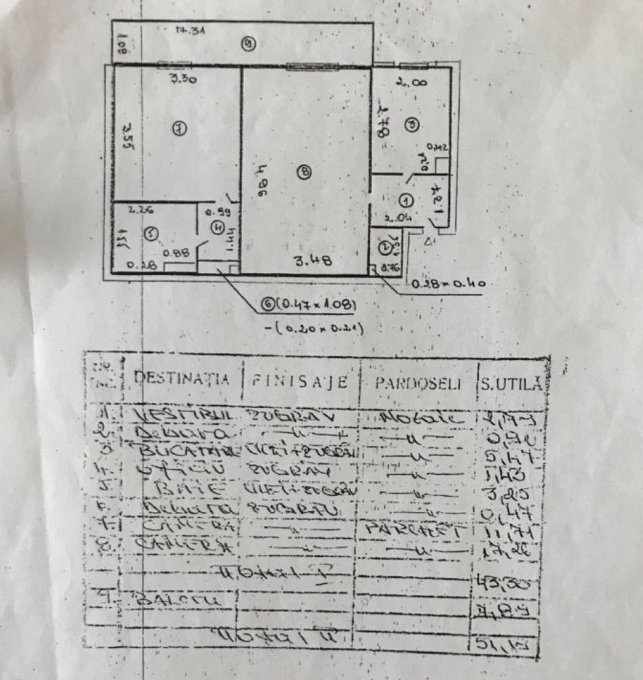 17.31
1.08
9
3.30
2.00
3.55
7
2.78
3
8
4.96
0.42
0.20
1
1.37
2.26
0.99
2.04
5
4
2
1.55
1.44
0.88
0.28
3.48
0.76
0.28 x 0.40
6 (0.47 x 1.08)
-(0.20 x 0.21)
DESTINAȚIA FINISAJE PARDOSELI S.UTILĂ
1. VESTIBUL ZUGRAV MOZAIC 2,79
2. Debara —"— —"—
3 BUCATARIE —"— 5,47
4. OFICIU ZUGRAV —"— 1,43
5. BAIE —"—
6 Debara ZUGRAV —"— 0,47
7 CAMERA —"— PARCHET 11,71
8. CAMERA —"— —"— 17,26
TOTAL I 43,30
9 BALCON 7,85
TOTAL II 51,15